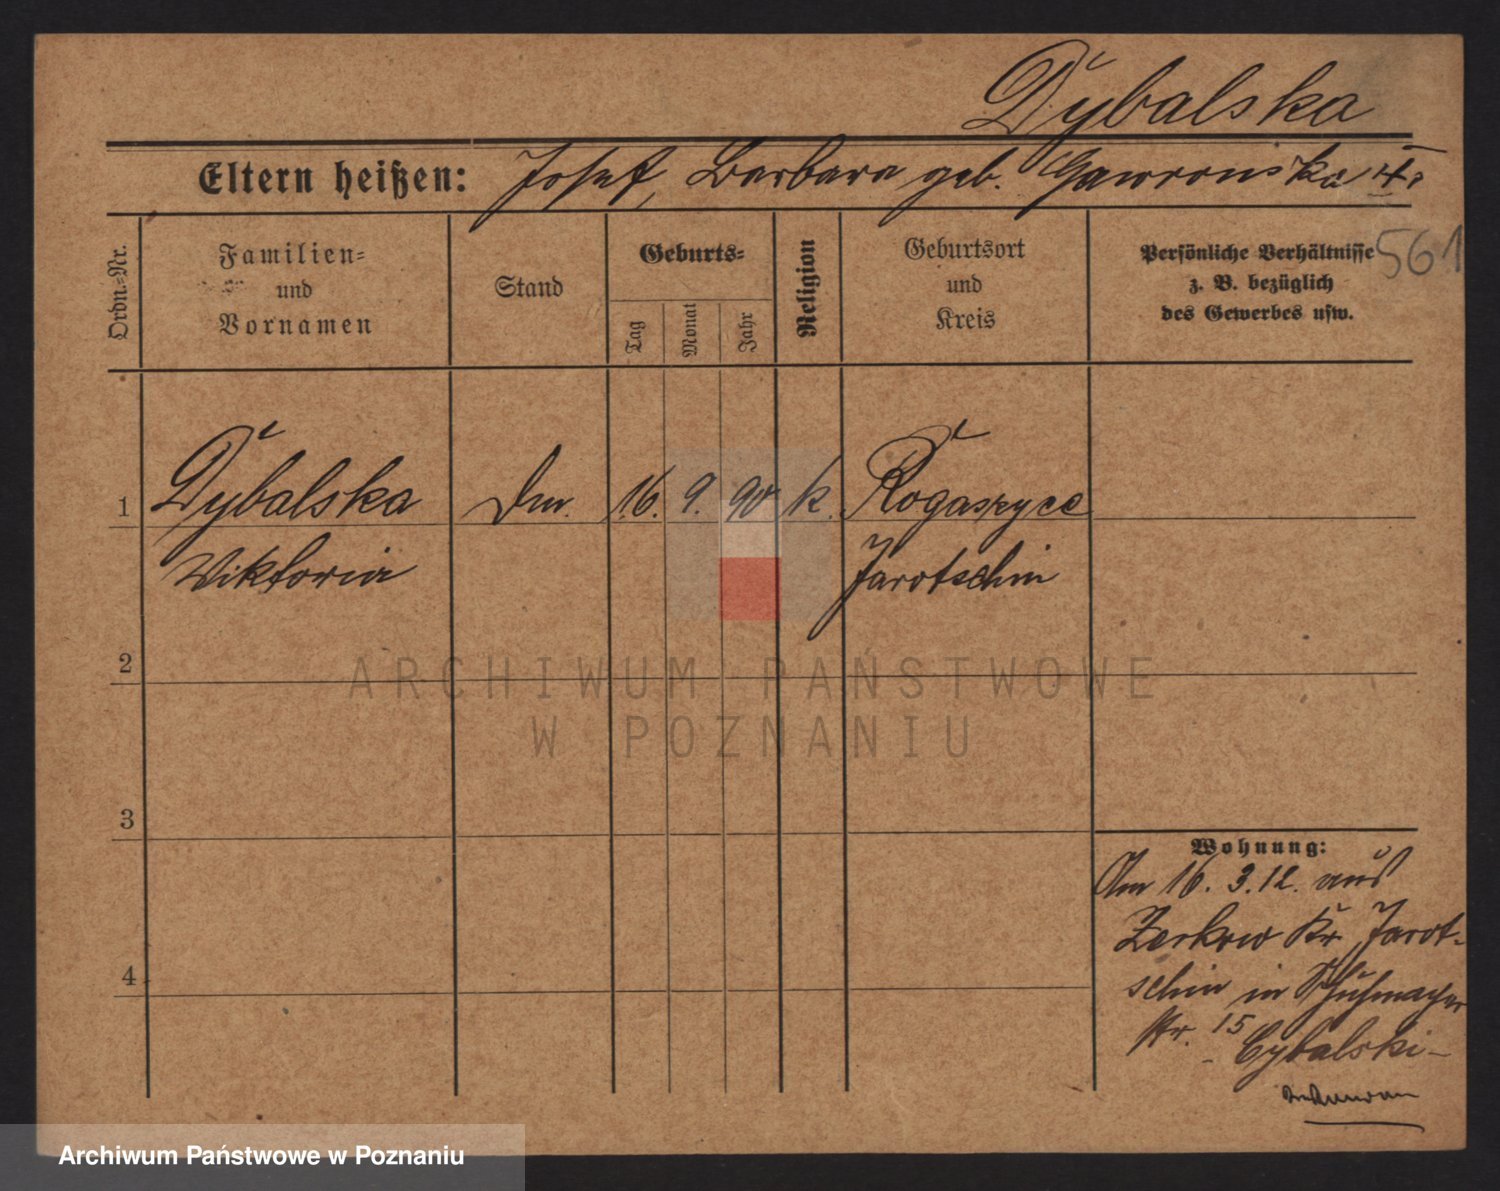 Dybalska
Eltern heißen: Josef, Barbara geb. Gawronska
561
Ordn.-Nr.
Familien-
und
Vornamen
Stand
Geburts-
Tag
Monat
Jahr
Religion
Geburtsort
und
Kreis
Persönliche Verhältnisse
z. B. bezüglich
des Gewerbes usw.
1 Dybalska Dm. 16. 9. 90 k. Rogaszyce
Viktoria Jarotschin
2
3
4
ARCHIWUM PAŃSTWOWE
W POZNANIU
Wohnung:
Am 16. 3. 12. aus
Zerkow Kr. Jarot-
schin in Schuhmacher
str. 15
- Cybalski -
Archiwum Państwowe w Poznaniu